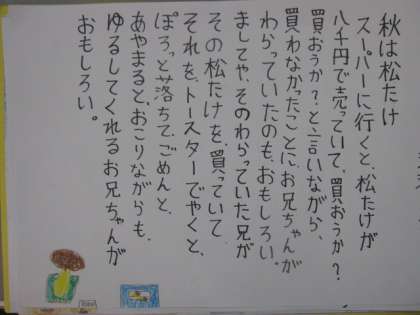 秋は松たけ
スーパーに行くと、松たけが
八千円で売っていて、買おうか？
買おうか？と言いながら、
買わなかったことに、お兄ちゃんが
わらっていたのも、おもしろい。
ましてや、そのわらっていた兄が
その松たけを、買っていて、
それを、トースターでやくと、
ぽろっと落ちて、ごめんと、
あやまると、おこりながらも、
ゆるしてくれるお兄ちゃんが
おもしろい。